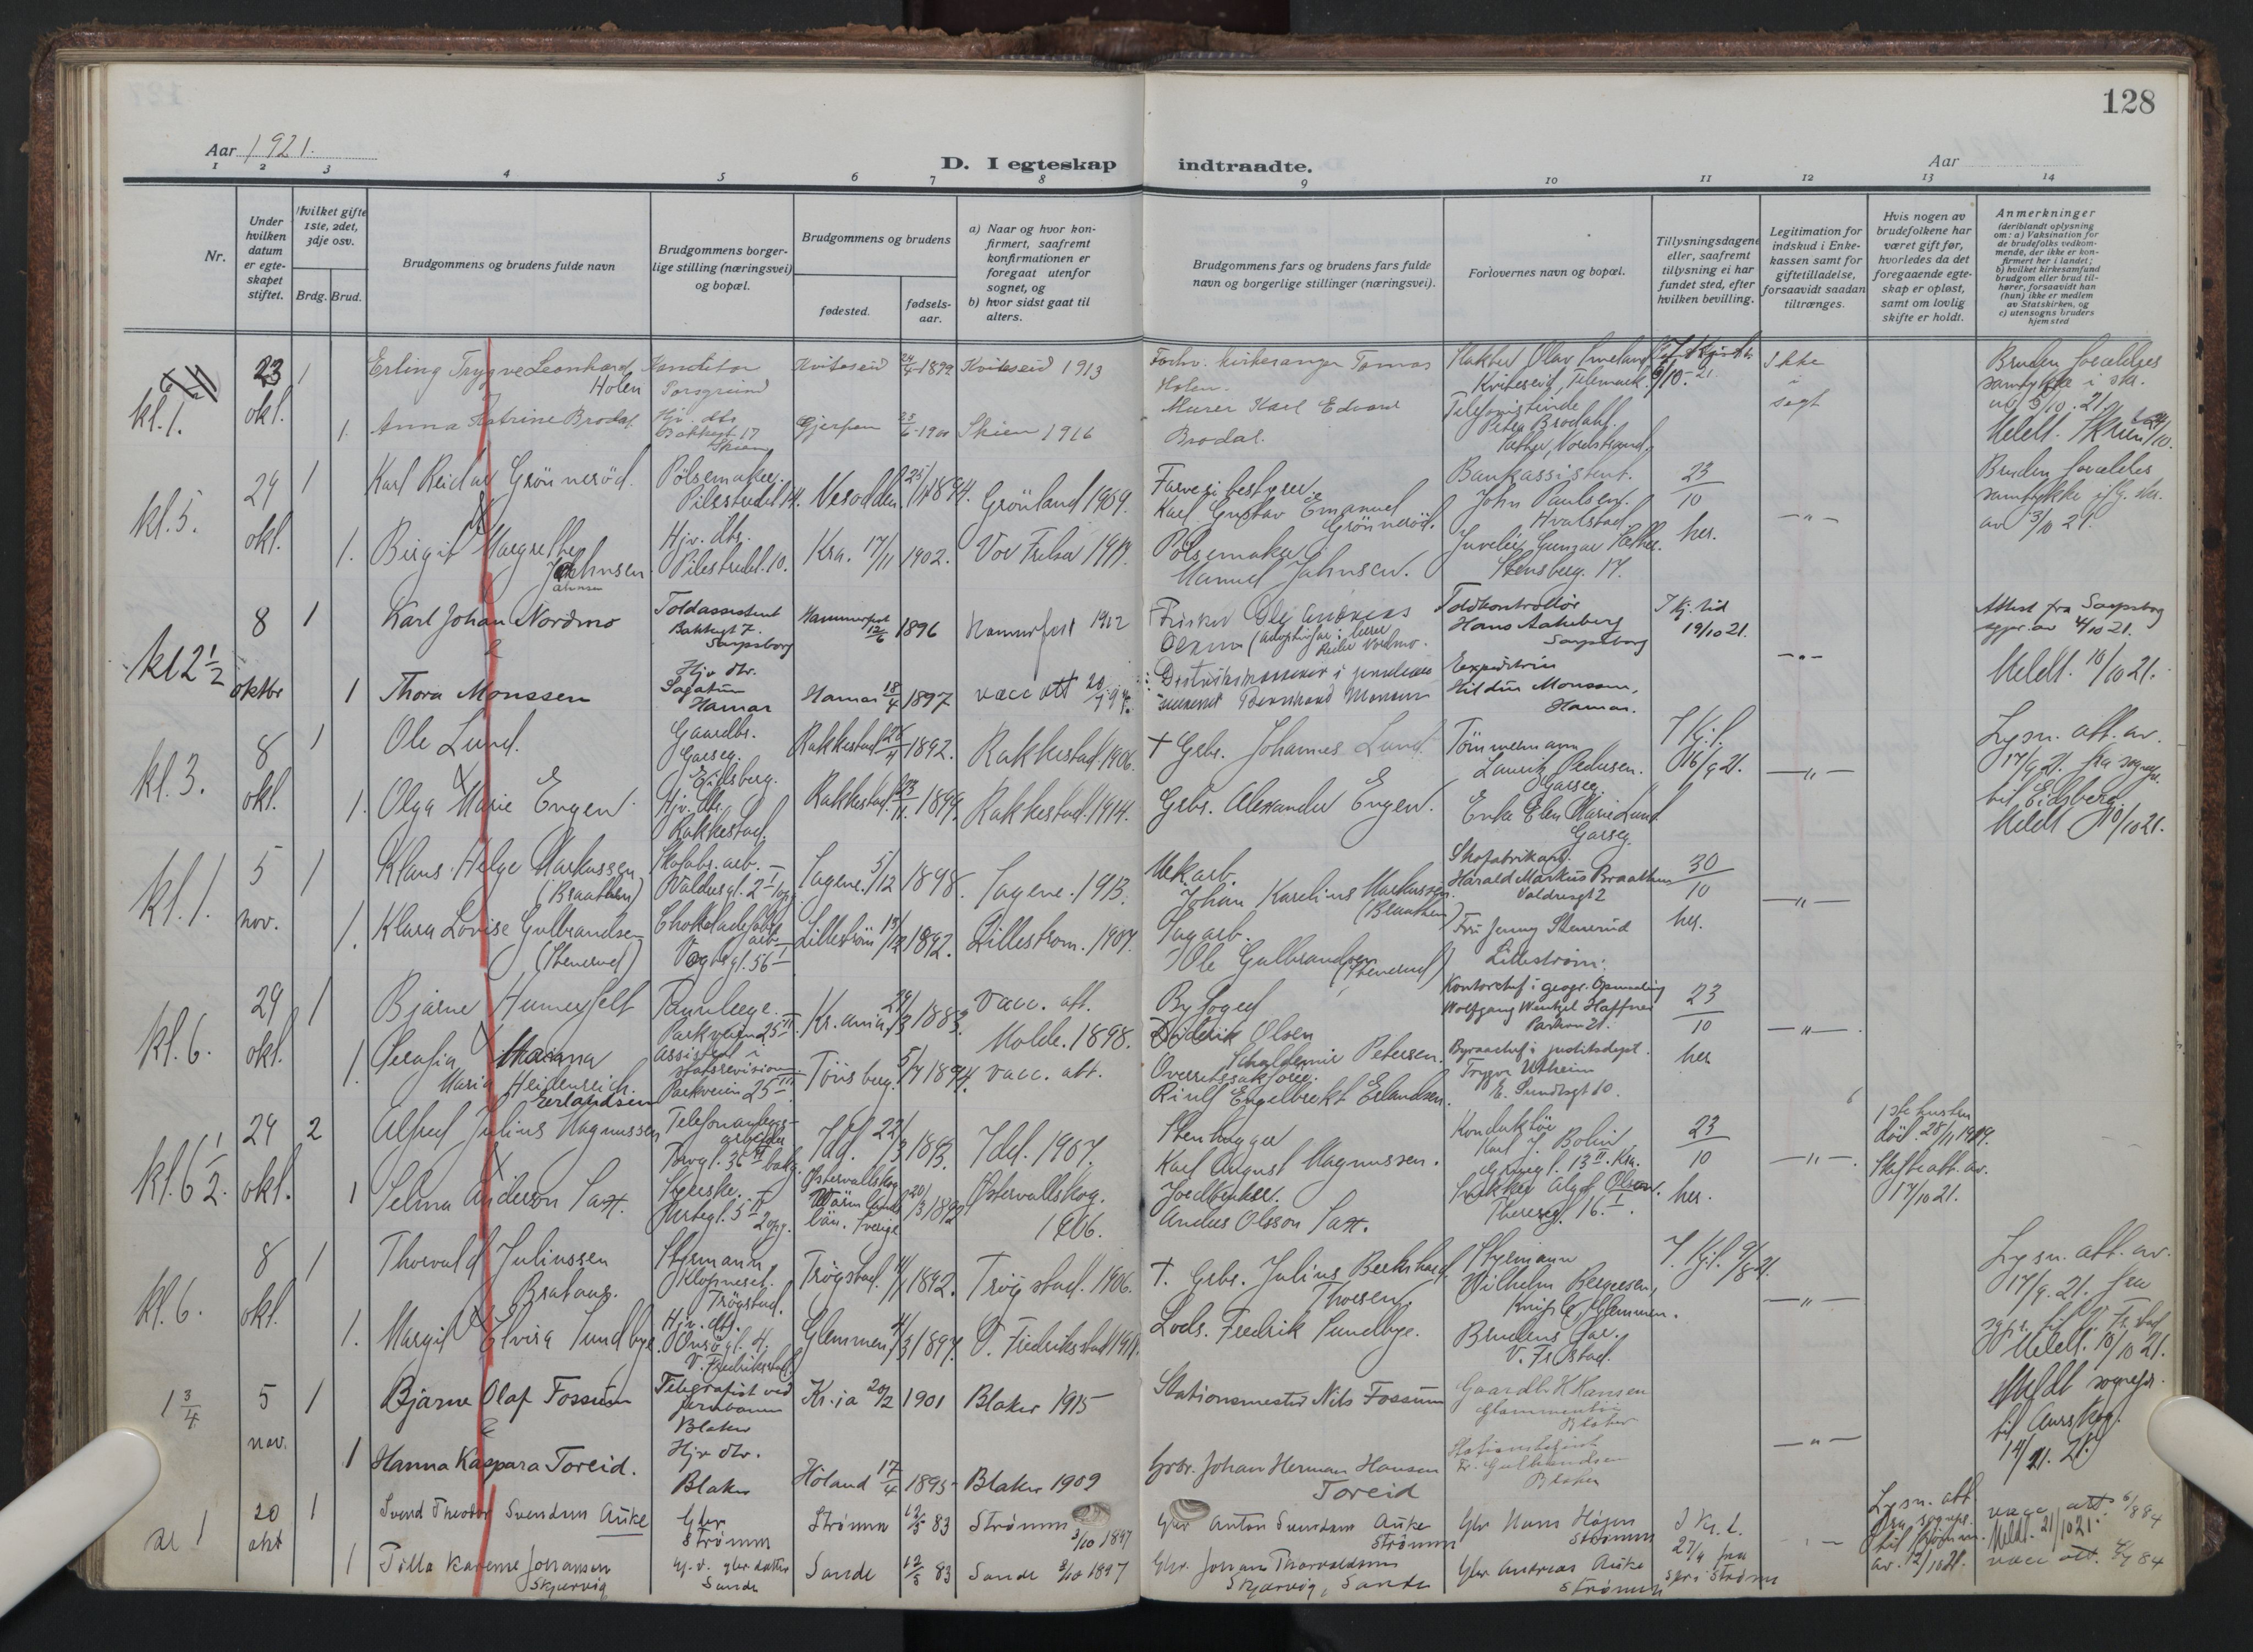 128
Aar 1921.
D. I egteskap indtraadte.
Aar
1 2 3 4 5 6 7 8 9 10 11 12 13 14
Nr.
Under hvilken datum er egteskapet stiftet.
Hvilket gifte 1ste, 2det, 3dje osv.
Brdg. Brud.
Brudgommens og brudens fulde navn
Brudgommens borgerlige stilling (næringsvei) og bopæl.
Brudgommens og brudens
fødested.
fødsels-aar.
a) Naar og hvor konfirmert, saafremt konfirmationen er foregaat utenfor sognet, og
b) hvor sidst gaat til alters.
Brudgommens fars og brudens fars fulde navn og borgerlige stillinger (næringsvei).
Forlovernes navn og bopæl.
Tillysningsdagene eller, saafremt tillysning ei har fundet sted, efter hvilken bevilling.
Legitimation for indskud i Enkekassen samt for giftetilladelse, forsaavidt saadan tiltrænges.
Hvis nogen av brudefolkene har været gift før, hvorledes da det foregaaende egteskap er opløst, samt om lovlig skifte er holdt.
Anmerkninger (deriblandt oplysning om: a) Vaksination for de brudefolks vedkommende, der ikke er konfirmert her i landet; b) hvilket kirkesamfund brudgom eller brud tilhører, forsaavidt han (hun) ikke er medlem av Statskirken, og c) utensogns bruders hjemsted
kl. 1. 23 okt. 1
Erling Trygve Leonhard Holen
Konditor Porsgrund
Kviteseid 24/4 1899
Kviteseid 1913
Forhv. kirkesanger Tomas Holen.
Kviteseid, Telemark.
Ikke i sogt
Bruden forældres samtykke i skr. av 5/10. 21.
1. Anna Katrine Brodal.
Hjv. dtr. Bakkegt. 17 Skien
Gjerpen 23/6 1901
Skien 1916
Murer Karl Edvard Brodal.
Telefonistinde Petra Brodahl. Sæther, Nordstrand.
Meldt. Skien
kl. 5. 24 okt. 1
Karl Reidar Grönneröd.
Pölsemaker. Pilestredet 14.
Nesodden 1894.
Grönland 1909.
Farveribestyrer Karl Gustav Emanuel Grönneröd.
Bankassistent. John Paulsen. Hvalstad
23/10 her.
— " —
Bruden forældres samtykke ifg. skr. av 13/10 21.
1. Birgit Margrethe Jahnsen
Hjv. dtr. Pilestredet. 10.
Kra. 17/11 1902.
Vor Frelser 1917.
Pölsemaker Manuel Jahnsen.
Juvelér Gunnar Sæther. Stensberg. 17.
kl 2 1/2 8 oktbr 1
Karl Johan Nordmo
&
Toldassistent Bakkegt 7. Sarpsborg
Hammerfest 12/6 1896
Hammerfest 1912
Fisker Ole Andreas
Toldkontrollör Hans Aakeberg Sarpsborg
19/10 21.
— " —
Attest fra Sarpsborg sgpr. av 4/10 21.
Meldt. 10/10 21.
1 Thora Monssen
Hjv dtr. Sagatun Hamar
Hamar 18/4 1897
vacc att
Bernhard Monssen
Expeditrice Hildur Monssen, Hamar.
kl. 3. 8 okt. 1
Ole Lund.
Gaardbr. Garseg. Eidsberg.
Rakkestad 26/4 1892.
Rakkestad. 1906.
† Grbr. Johannes Lund.
Tömmermann Lauritz Pedersen. Garseg.
16/9 21.
— " —
Lysn. att. av. 17/9 21. fra sognepr. til Eidsberg.
Meldt 10/10 21.
1. Olga Marie Engen
Hjv. dtr. Rakkestad.
Rakkestad. 23/11 1899.
Rakkestad. 1914.
Grbr. Alexander Engen.
Enke Elen Marie Lund Garseg.
kl. 1. 5 nov. 1
Klaus Helge Markussen (Braathen)
Skofabr. arb. Valdresgt. 2 I opg.
Sagene. 5/12 1898.
Sagene. 1913.
Mek. arb. Johan Karelius Markussen (Braathen)
Skofabrikant. Harald Markus Braathen Valdresgt 2
30/10 her.
— " —
1. Klara Lovise Gulbrandsen (Stenerud)
Chokoladefabr. arb. Vogtsgt. 56 I
Lilleström 1892.
Lilleström. 1907.
Sagarb. Ole Gulbrandsen (Stenerud)
Fru Jenny Stenerud Lilleström.
kl. 6. 29 okt. 1
Bjarne Humerfelt
Tannlæge. Parkveien 25 III
Kr.ania, 1883.
vacc. att. Molde. 1898.
Byfoged Diderik Olsen
Kontorchef i geogr. Opmaaling Wolfgang Wenkel Haffner Parkvn 21.
23/10 her
— " —
1. Maria Heidenreich. Erlandsen
Assistent i statsrevisionen Parkveien 25 III
Tönsberg. 5/7 1894.
vacc. att.
Overretssakförer. Rinlf Engelbrekt Erlandsen.
Byraachef i justitsdept. Trygve Utheim E. Sundtsgt 10.
kl. 6 1/2. 24 okt. 2
Alfred Julius Magnussen
Telefonanlegs-arbeider Torvgt. 36 bakg.
Idd. 22/3 1893.
Idd. 1907.
Stenhugger Karl August Magnussen.
Konduktör Karl J. Bolin 13 II. Kra.
23/10 her.
— " —
1ste hustru död. 28/11 1919. Skifteatt. av. 17/10 21.
1 Selma Anderson Sax.
Östervallskog Wärmlands län. Sverige 20/3 1892
Östervallskog. 1906.
Jordbruker. Anders Olsson Sax.
Snekker Algot Olson. Theresegt. 16. I.
kl. 6. 8 okt. 1
Thorvald Juliussen Brataas.
Styrmann. Klofsneset. Trögstad.
Trögstad. 1892.
Trögstad. 1906.
†. Grbr. Julius Bernhard Thoresen
Styrmann Wilhelm Borgersen, Glemmen.
— " —
Lysn. att. av. 17/9. 21. fra sgpr. til V. Fr.stad
Meldt. 10/10 21.
1. Margit Elvira Sundbye
Hjv. dtr. Onsögt. 4. V. Fredriksstad
Glemmen. 4/3 1897.
V. Fredriksstad 1911.
Lods. Fredrik Sundbye.
Brudens far. V. Fr.stad.
1 3/4 5 nov. 1
Bjarne Olaf Fossum
&
Telegrafist ved jernbanen Blaker
Kr.ia 20/2 1901
Blaker 1915
Stationsmester Nils Fossum
Gaardbr. H Hansen Blaker
— " —
Meldt sognepr. til Aurskog. 14/11. 21.
1 Hanna Kaspara Toreid.
Hjv dtr. Blaker
Höland 17/4 1895
Blaker 1909
Grbr. Johan Herman Hansen Toreid
Fr. Gulbrandsen Blaker
kl 1 20 okt 1
Svend Theodor Svendsen Auke
Gbr Strömm
Strömm 12/5 83
Strömm 3/10 1897
Gbr Anton Svendsen Auke Strömm
Gbr Hans Höjen Strömm
27/9 fra spr i Strömm
Lysn. att. fra sognepr. til Strömm. av. 12/10 21.
vacc att 6/8 84
Meldt. 21/10 21.
1 Tilla Kaverne Johansen Skjærvig
Gbr datter Sande
Sande 12/3 83
Sande 3/10 1897
Gbr. Johan Thorvaldsen Skjærvig, Sande
Gbr Andreas Auke Strömm
vacc att. 84